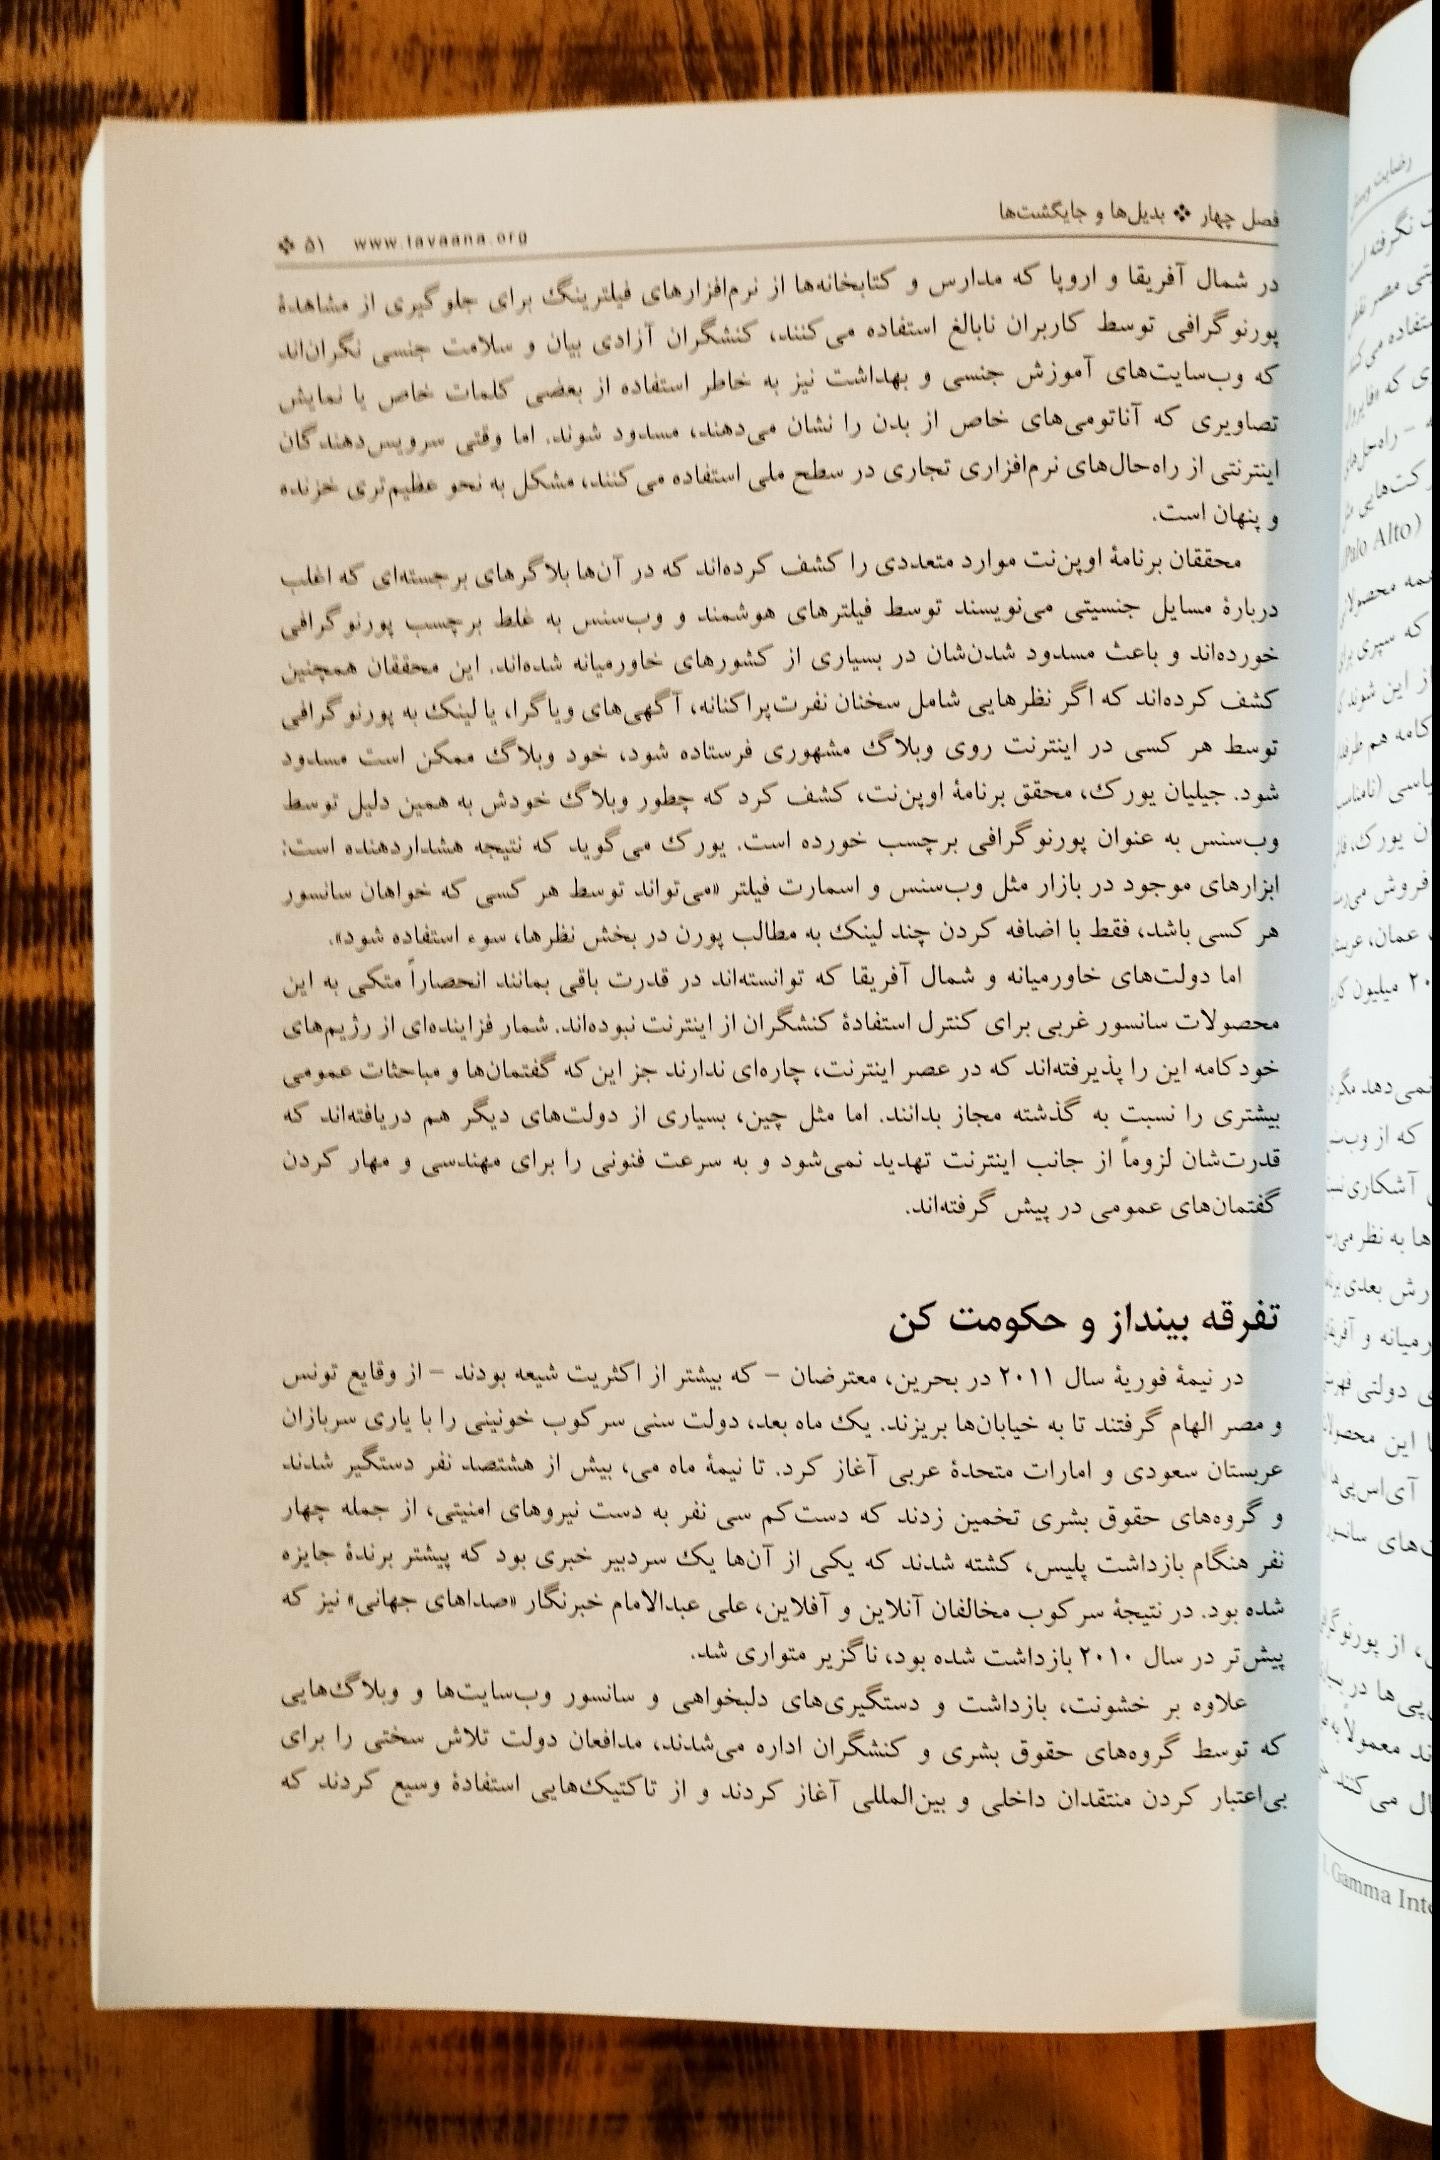 فصل چهار ❖ بدیل‌ها و جایگشت‌ها
www.tavaana.org ۵۱ ❖
در شمال آفریقا و اروپا که مدارس و کتابخانه‌ها از نرم‌افزارهای فیلترینگ برای جلوگیری از مشاهدهٔ
پورنوگرافی توسط کاربران نابالغ استفاده می‌کنند، کنشگران آزادی بیان و سلامت جنسی نگران‌اند
که وب‌سایت‌های آموزش جنسی و بهداشت نیز به خاطر استفاده از بعضی کلمات خاص یا نمایش
تصاویری که آناتومی‌های خاص از بدن را نشان می‌دهند، مسدود شوند. اما وقتی سرویس‌دهندگان
اینترنتی از راه‌حال‌های نرم‌افزاری تجاری در سطح ملی استفاده می‌کنند، مشکل به نحو عظیم‌تری خزنده
و پنهان است.
محققان برنامهٔ اوپن‌نت موارد متعددی را کشف کرده‌اند که در آن‌ها بلاگرهای برجسته‌ای که اغلب
دربارهٔ مسایل جنسیتی می‌نویسند توسط فیلترهای هوشمند و وب‌سنس به غلط برچسب پورنوگرافی
خورده‌اند و باعث مسدود شدن‌شان در بسیاری از کشورهای خاورمیانه شده‌اند. این محققان همچنین
کشف کرده‌اند که اگر نظرهایی شامل سخنان نفرت‌پراکنانه، آگهی‌های ویاگرا، یا لینک به پورنوگرافی
توسط هر کسی در اینترنت روی وبلاگ مشهوری فرستاده شود، خود وبلاگ ممکن است مسدود
شود. جیلیان یورک، محقق برنامهٔ اوپن‌نت، کشف کرد که چطور وبلاگ خودش به همین دلیل توسط
وب‌سنس به عنوان پورنوگرافی برچسب خورده است. یورک می‌گوید که نتیجه هشداردهنده است:
ابزارهای موجود در بازار مثل وب‌سنس و اسمارت فیلتر «می‌تواند توسط هر کسی که خواهان سانسور
هر کسی باشد، فقط با اضافه کردن چند لینک به مطالب پورن در بخش نظرها، سوء استفاده شود».
اما دولت‌های خاورمیانه و شمال آفریقا که توانسته‌اند در قدرت باقی بمانند انحصاراً متکی به این
محصولات سانسور غربی برای کنترل استفادهٔ کنشگران از اینترنت نبوده‌اند. شمار فزاینده‌ای از رژیم‌های
خودکامه این را پذیرفته‌اند که در عصر اینترنت، چاره‌ای ندارند جز این‌که گفتمان‌ها و مباحثات عمومی
بیشتری را نسبت به گذشته مجاز بدانند. اما مثل چین، بسیاری از دولت‌های دیگر هم دریافته‌اند که
قدرت‌شان لزوماً از جانب اینترنت تهدید نمی‌شود و به سرعت فنونی را برای مهندسی و مهار کردن
گفتمان‌های عمومی در پیش گرفته‌اند.
تفرقه بینداز و حکومت کن
در نیمهٔ فوریهٔ سال ۲۰۱۱ در بحرین، معترضان – که بیشتر از اکثریت شیعه بودند – از وقایع تونس
و مصر الهام گرفتند تا به خیابان‌ها بریزند. یک ماه بعد، دولت سنی سرکوب خونینی را با یاری سربازان
عربستان سعودی و امارات متحدهٔ عربی آغاز کرد. تا نیمهٔ ماه می، بیش از هشتصد نفر دستگیر شدند
و گروه‌های حقوق بشری تخمین زدند که دست‌کم سی نفر به دست نیروهای امنیتی، از جمله چهار
نفر هنگام بازداشت پلیس، کشته شدند که یکی از آن‌ها یک سردبیر خبری بود که پیشتر برندهٔ جایزه
شده بود. در نتیجهٔ سرکوب مخالفان آنلاین و آفلاین، علی عبدالامام خبرنگار «صداهای جهانی» نیز که
پیش‌تر در سال ۲۰۱۰ بازداشت شده بود، ناگزیر متواری شد.
علاوه بر خشونت، بازداشت و دستگیری‌های دلبخواهی و سانسور وب‌سایت‌ها و وبلاگ‌هایی
که توسط گروه‌های حقوق بشری و کنشگران اداره می‌شدند، مدافعان دولت تلاش سختی را برای
بی‌اعتبار کردن منتقدان داخلی و بین‌المللی آغاز کردند و از تاکتیک‌هایی استفادهٔ وسیع کردند که